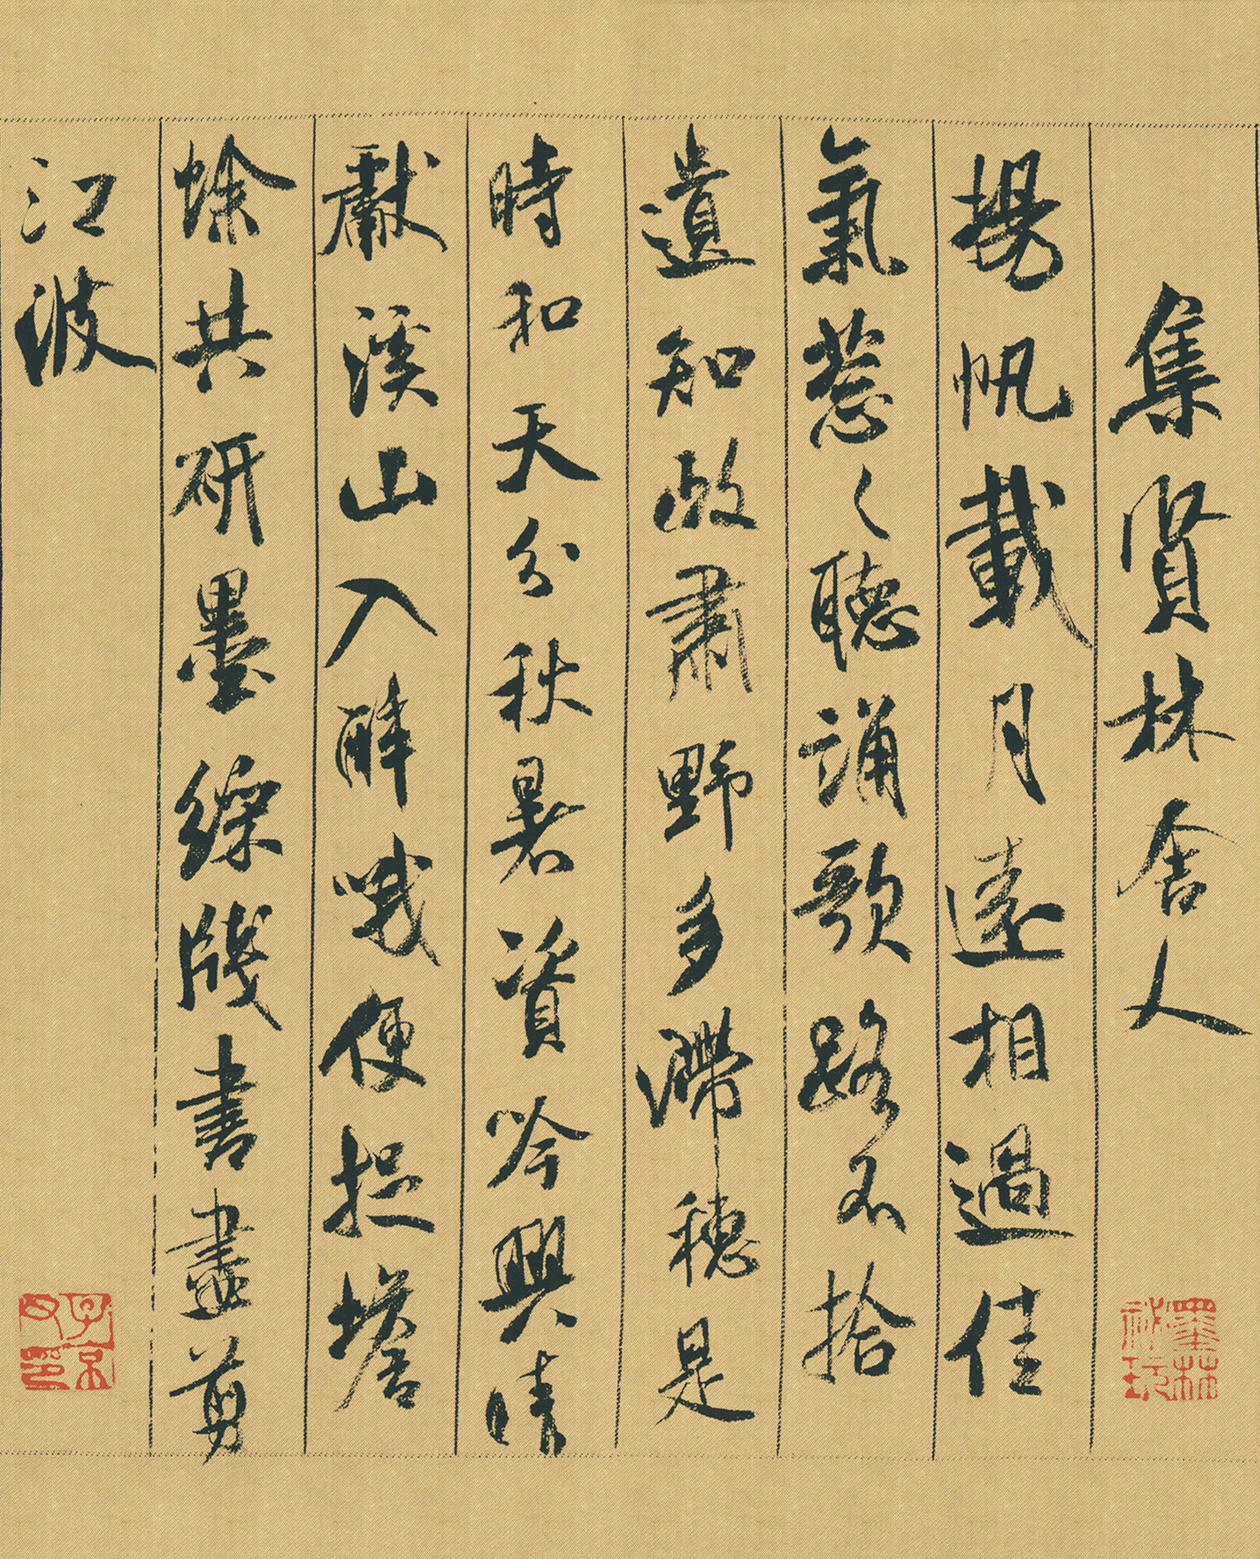 集賢林舍人
揚帆載月遠相過佳
氣葱々聽誦歌路不拾
遺知政肅野多滯穗是
時和天分秋暑資吟興晴
獻溪山入醉哦便捉蟾
蜍共研墨綵牋書盡剪
江波
墨林秘玩
子京父印